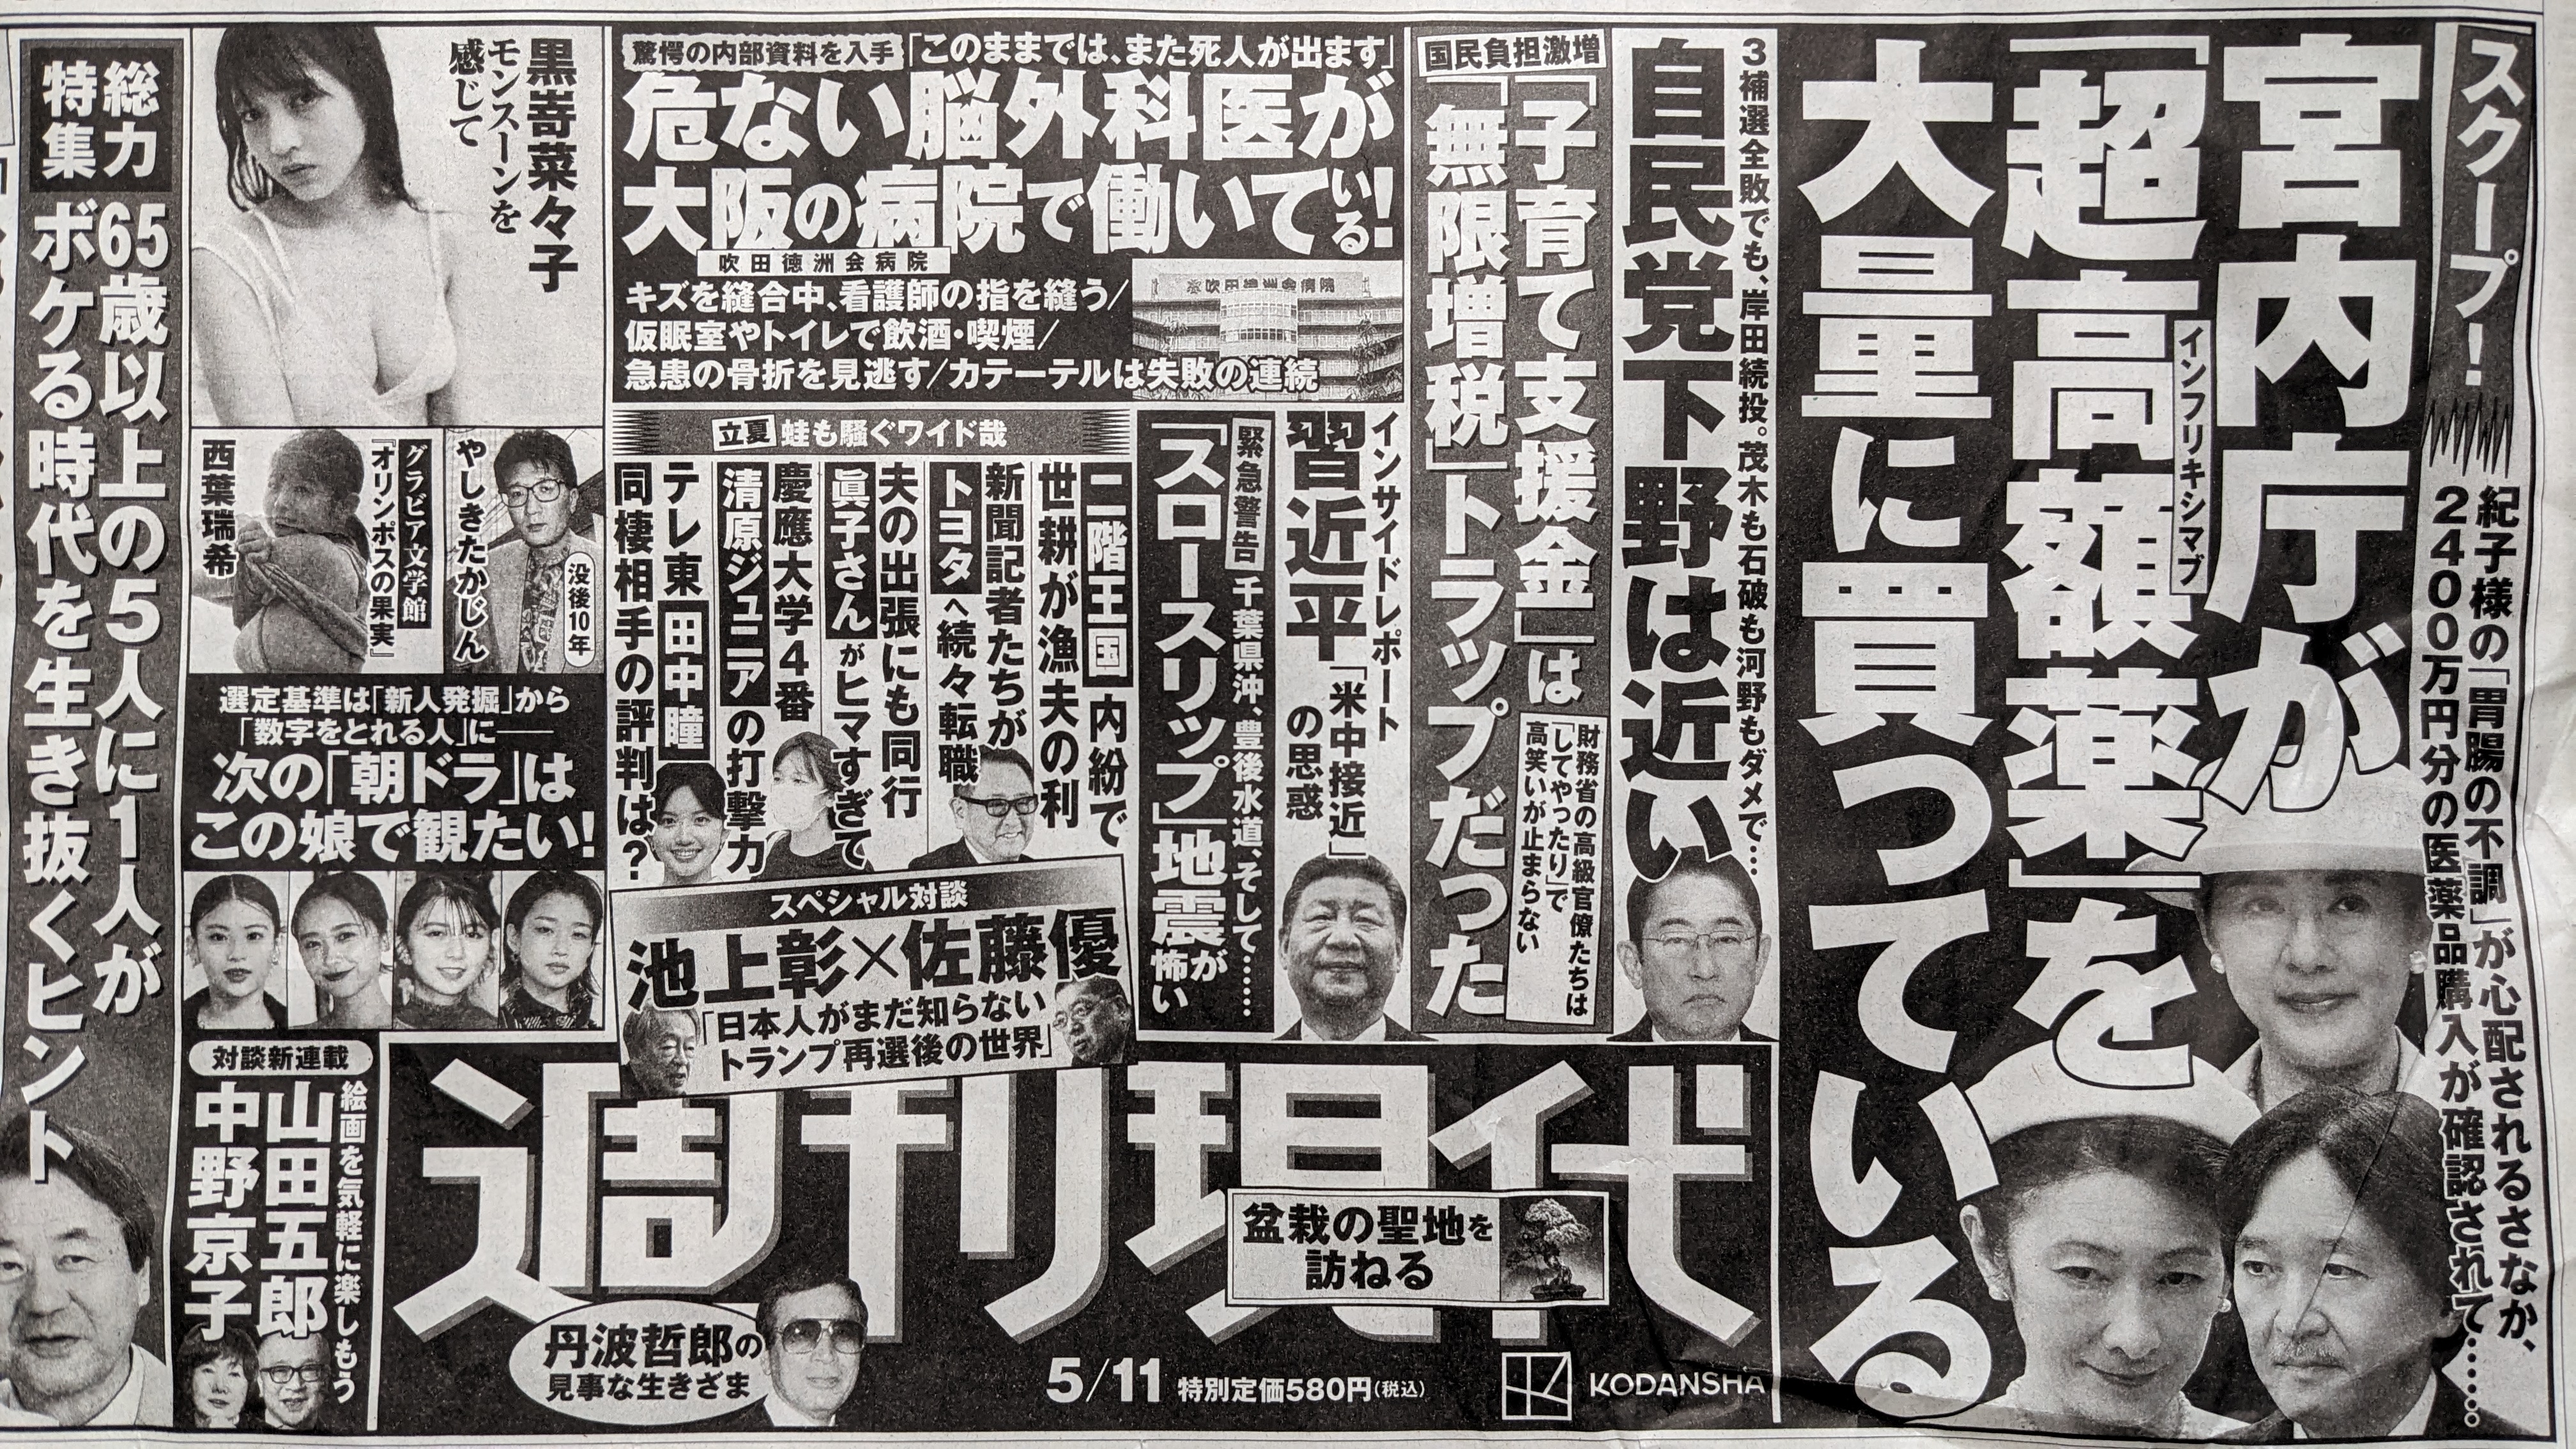 スクープ!
紀子様の「胃腸の不調」が心配されるさなか、
2400万円分の医薬品購入が確認されて……。
宮内庁が
「超高額薬」を
インフリキシマブ
大量に買っている
3補選全敗でも、岸田続投。茂木も石破も河野もダメで…
自民党下野は近い
国民負担激増
「子育て支援金」は
「無限増税」トラップだった
財務省の高級官僚たちは
「してやったり」で
高笑いが止まらない
驚愕の内部資料を入手
「このままでは、また死人が出ます」
危ない脳外科医が
大阪の病院で働いている!
吹田徳洲会病院
キズを縫合中、看護師の指を縫う/
仮眠室やトイレで飲酒・喫煙/
急患の骨折を見逃す/カテーテルは失敗の連続
吹田徳洲会病院
インサイドレポート
習近平
「米中接近」
の思惑
緊急警告
千葉県沖、豊後水道、そして……
「スロースリップ」地震が怖い
立夏 蛙も騒ぐワイド哉
二階王国 内紛で
世耕が漁夫の利
新聞記者たちが
トヨタへ続々転職
夫の出張にも同行
眞子さんがヒマすぎて
慶應大学4番
清原ジュニアの打撃力
テレ東 田中瞳
同棲相手の評判は?
スペシャル対談
池上彰×佐藤優
「日本人がまだ知らない
トランプ再選後の世界」
黒嵜菜々子
モンスーンを
感じて
没後10年
やしきたかじん
グラビア文学館
『オリンポスの果実』
西葉瑞希
選定基準は「新人発掘」から
「数字をとれる人」に──
次の「朝ドラ」は
この娘で観たい!
対談新連載
絵画を気軽に楽しもう
山田五郎
中野京子
総力
特集
65歳以上の5人に1人が
ボケる時代を生き抜くヒント
週刊現代
盆栽の聖地を
訪ねる
丹波哲郎の
見事な生きざま
5/11 特別定価580円(税込)
KODANSHA